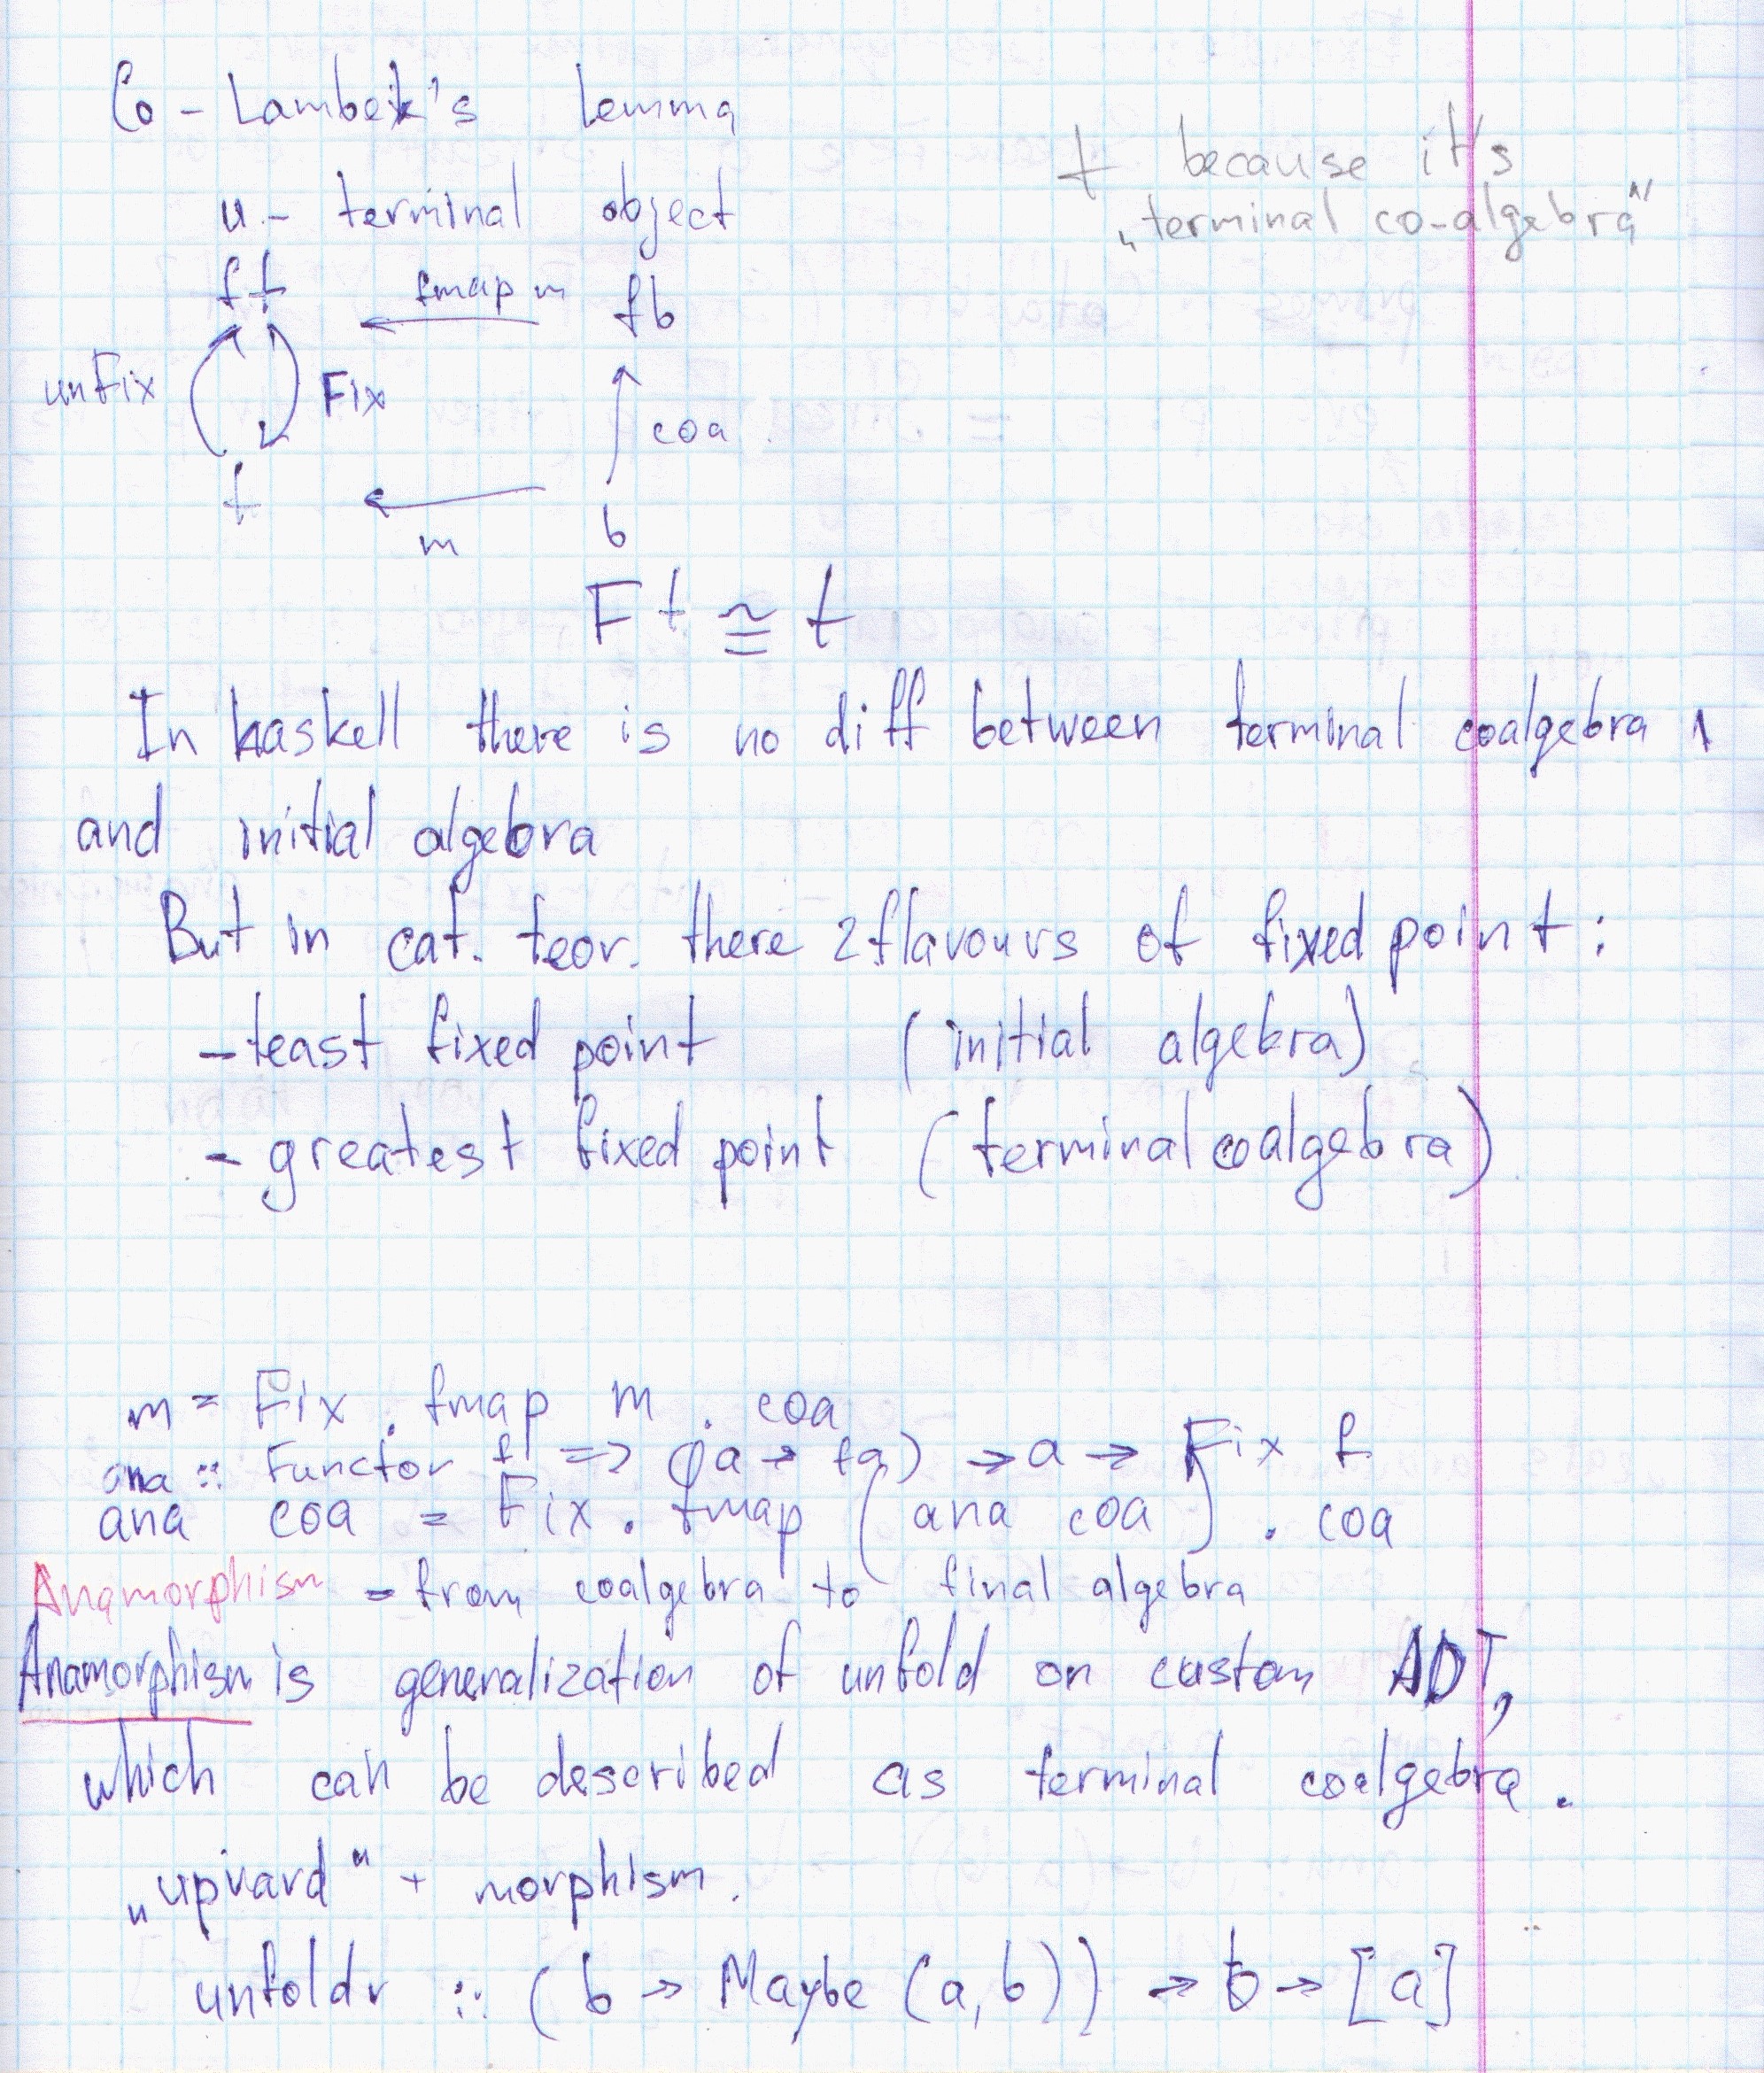 Co - Lambek's lemma
t because it's
„terminal co-algebra"
u - terminal object
ft fmap m fb
unFix Fix coa
t m b
F t ≅ t
In haskell there is no diff between terminal coalgebra
and initial algebra
But in cat. teor. there 2 flavours of fixed point :
- least fixed point (initial algebra)
- greatest fixed point (terminal coalgebra)
m = Fix . fmap m . coa
ana :: Functor f => (a → fa) → a → Fix f
ana coa = Fix . fmap (ana coa) . coa
Anamorphism = from coalgebra to final algebra
Anamorphism is generalization of unfold on custom ADT,
which can be described as terminal coalgebra.
„upvard" + morphism.
unfoldr :: (b → Maybe (a,b)) → b → [a]